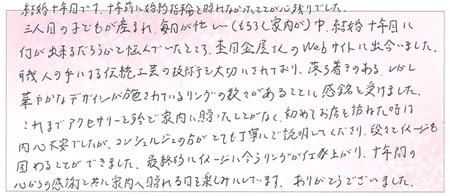 結婚十年目です。十年前に婚約指輪を贈れなかったことが心残りでした。
三人目の子どもが産まれ、毎日が忙しい(もちろん家内が)中、結婚十年目に
何が出来るだろうかと悩んでいたところ、杢目金屋さんのWebサイトに出会いました。
職人の手による伝統工芸の技術を大切にされており、落ち着きのある、しかし
華やかなデザインが施されているリングの数々があることに感銘を受けました。
これまでアクセサリーを自分で家内に贈ったことがなく、初めてお店を訪ねた時は
内心不安でしたが、コンシェルジュの方がとても丁寧にご説明してくださり、段々とイメージを
固めることができました。最終的にイメージに合うリングが仕上がり、十年間の
心からの感謝と共に家内へ贈れる日を楽しみにしています。ありがとうございました。